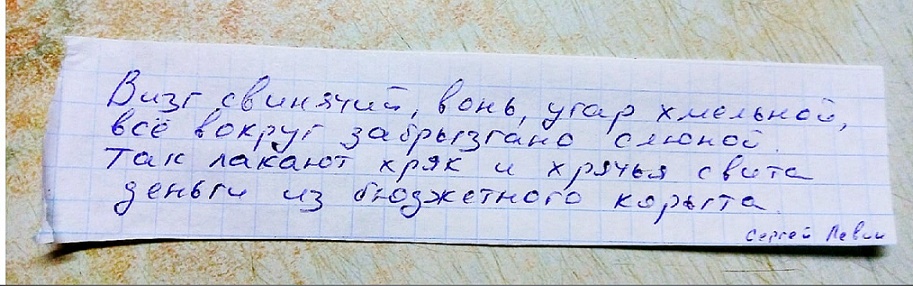 Визг свинячий, вонь, угар хмельной,
всё вокруг забрызгано слюной.
Так лакают хряк и хрячья свита
деньги из бюджетного корыта.
Сергей Левин